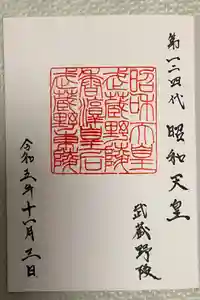 第一二四代 昭和天皇
武蔵野陵
昭和天皇
武蔵野陵
香淳皇后
武蔵野東陵
令和三年十一月三日